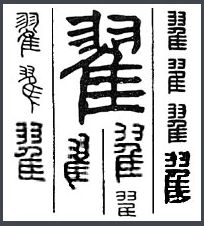 翟翟翟翟
翟
翟翟
翟
翟翟翟